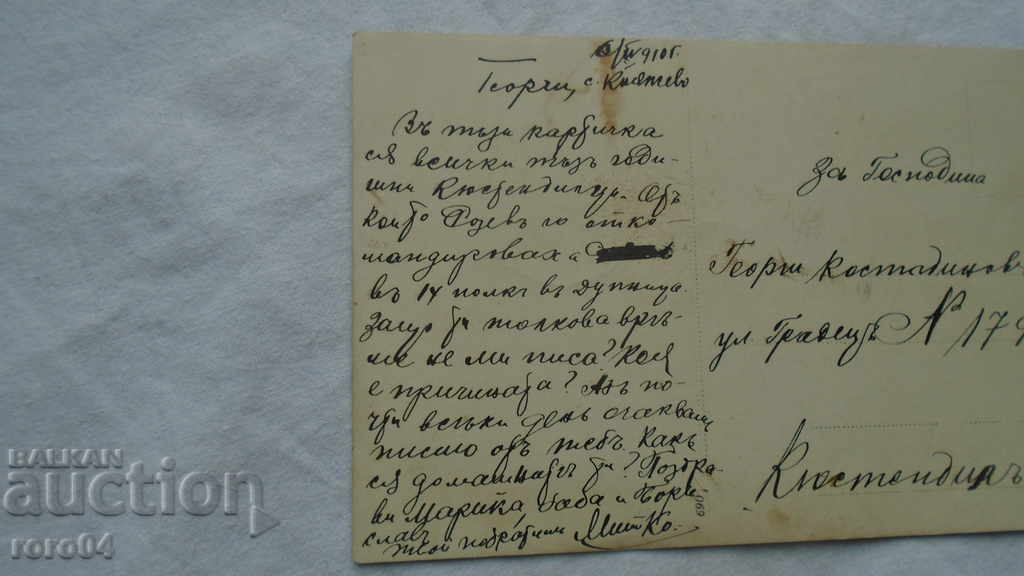 6/IV 910г.
Георги, с. Княжево
Въ тъзи картичка
ся всички тъзъ годи-
шни Кюстендилци. Отъ
които го отко-
мандироваха
въ 14 полкъ въ Дупница.
Защо ти толкова врѣ-
ме не ми писа? Коя
е причината? Азъ по-
чти всѣки день очаквамъ
писмо отъ тебъ. Какъ
ся домашнитѣ ти? Поздра-
ви Марийка, баба и Бори-
славъ
твой побратимъ Митко.
За Господина
Георги Костадинов
ул Градецъ № 179
Кюстендилъ
69
BALKAN
auction
roro04